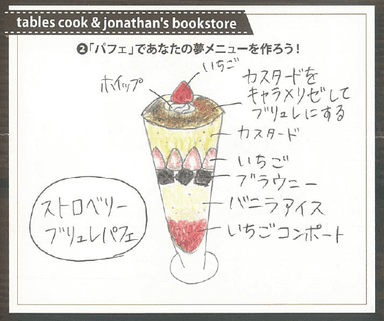 tables cook & jonathan's bookstore
❷「パフェ」であなたの夢メニューを作ろう!
いちご
ホイップ
カスタードを
キャラメリゼして
ブリュレにする
カスタード
いちご
ブラウニー
バニラアイス
いちごコンポート
ストロベリー
ブリュレパフェ